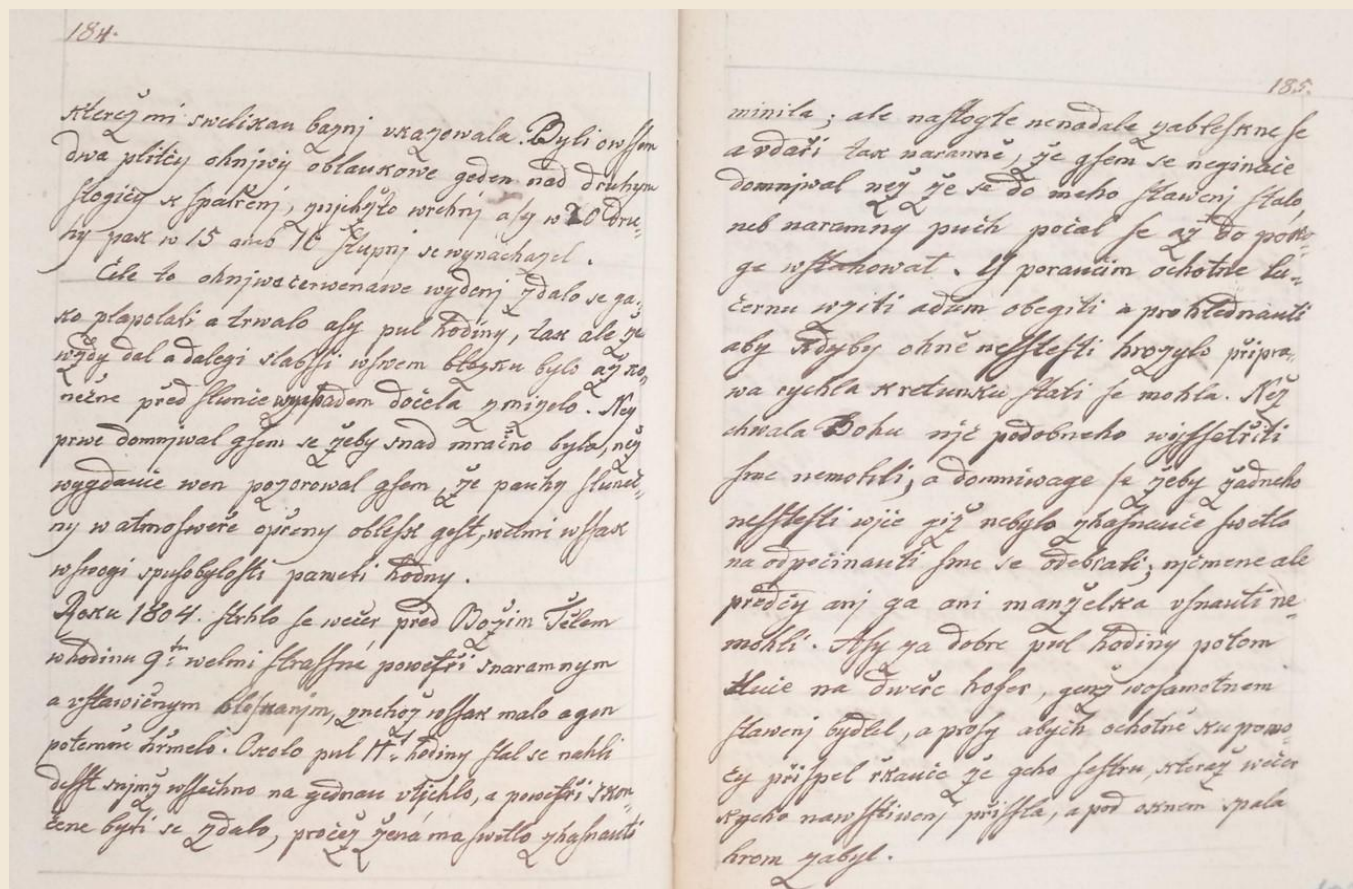 184.
kterež mi swelikau bazni vkazowala. Byli owssem
dwa plitčy ohniwy oblaukowe geden nad druhym
stogicy k spatřenj, znichžto wrchnj asy w 20 dru-
hy pak w 15 aneb 16 stupni se wynachazel.
Cele to ohniwočerwenawe wyděnj zdalo se ga-
ko plapolati a trwalo asy pul hodiny, tak ale že
wždy dal a dalegi slabssi wswem blesku bylo až ko-
nečně před slunce wychadem dočela zmizelo. Ney
prwe domnjwal gsem se žeby snad mračno bylo, než
wygdauce wen pozorowal gsem, že pauhy sluneč-
ny w atmosweře opřeny oblesk gest, welmi wssak
wswogi spusobylosti pameti hodny.
Roku 1804. strhlo se wečer před Božim Tělem
whodinu 9tu welmi strassné powetři snaramnym
a vstawičnym bleskanjm, znehož wssak malo agen
potemně hřmelo. Okolo pul 11t hodiny stal se nahli
desst snimž wssechno na gednau vtichlo, a powetři skon-
čene byti se zdalo, pročež žená ma swetlo zhasnauti
185.
minila; ale nastogte nenadale zableskne se
a vdaři tak naramně, že gsem se neginače
domnjwal než že se do meho stawenj stalo,
neb naramny puch počal se až do poko-
ge wstanowat. Y poraučim ochotne lu-
černu wziti adum obegiti a prohlednauti
aby kdyby ohně nesstesti hrozylo připra-
wa rychla k retunku stati se mohla. Než
chwala Bohu nic podobneho wyssetřiti
sme nemohli, a domniwage se žeby žadneho
nesstesti wjce giž nebylo zhasnauce swetlo
na odpočinauti sme se odebrali; njcmene ale
předcy anj ga ani manželka vsnauti ne
mohli. Asy za dobre pul hodiny potom
tluče na dweře hofer, genž wosamotnem
stawenj bydlel, a prosy abych ochotně ku pomo-
cy přispel řkauce že geho sestru, kteraž wečer
knemo nawsstiwenj přissla, a pod oknem spala
hrom zabyl.